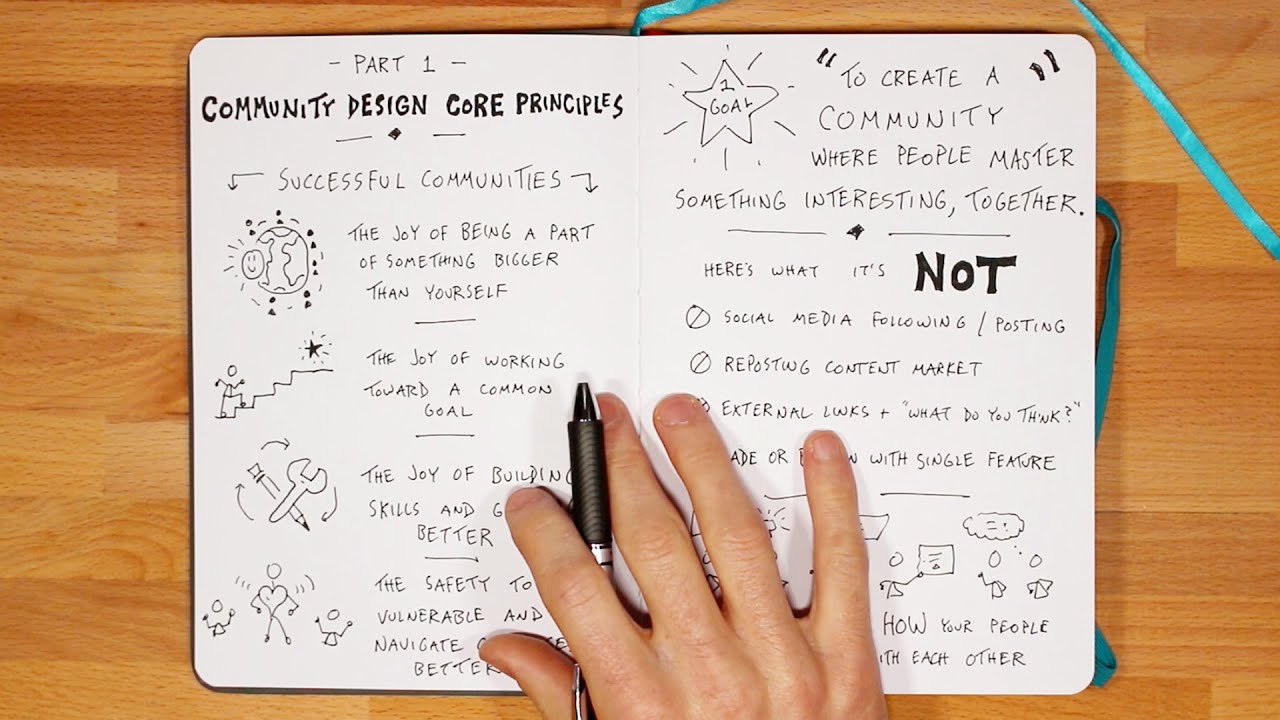 - PART 1 -
COMMUNITY DESIGN CORE PRINCIPLES
SUCCESSFUL COMMUNITIES
THE JOY OF BEING A PART
OF SOMETHING BIGGER
THAN YOURSELF
THE JOY OF WORKING
TOWARD A COMMON
GOAL
THE JOY OF BUILDING
SKILLS AND
BETTER
THE SAFETY TO
VULNERABLE AND
NAVIGATE
BETTER
1
GOAL
"TO CREATE A"
COMMUNITY
WHERE PEOPLE MASTER
SOMETHING INTERESTING, TOGETHER.
HERE'S WHAT IT'S NOT
SOCIAL MEDIA FOLLOWING / POSTING
REPOSTING CONTENT MARKET
EXTERNAL LINKS + "WHAT DO YOU THINK?"
OR WITH SINGLE FEATURE
HOW YOUR PEOPLE
EACH OTHER